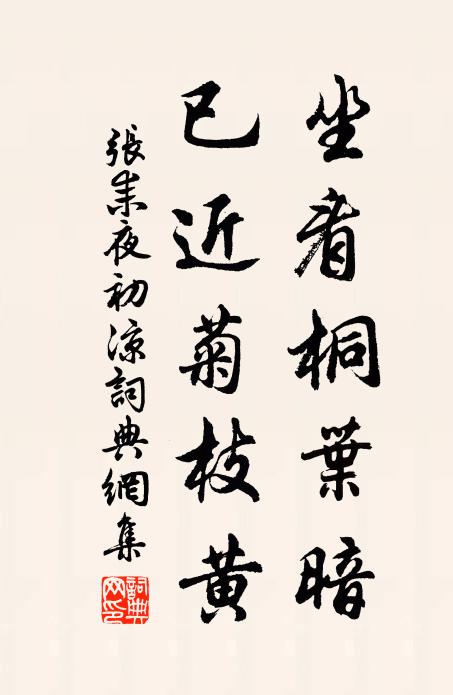 坐看桐葉暗
已近菊枝黄
張耒夜初涼詞典網集
詞典網印